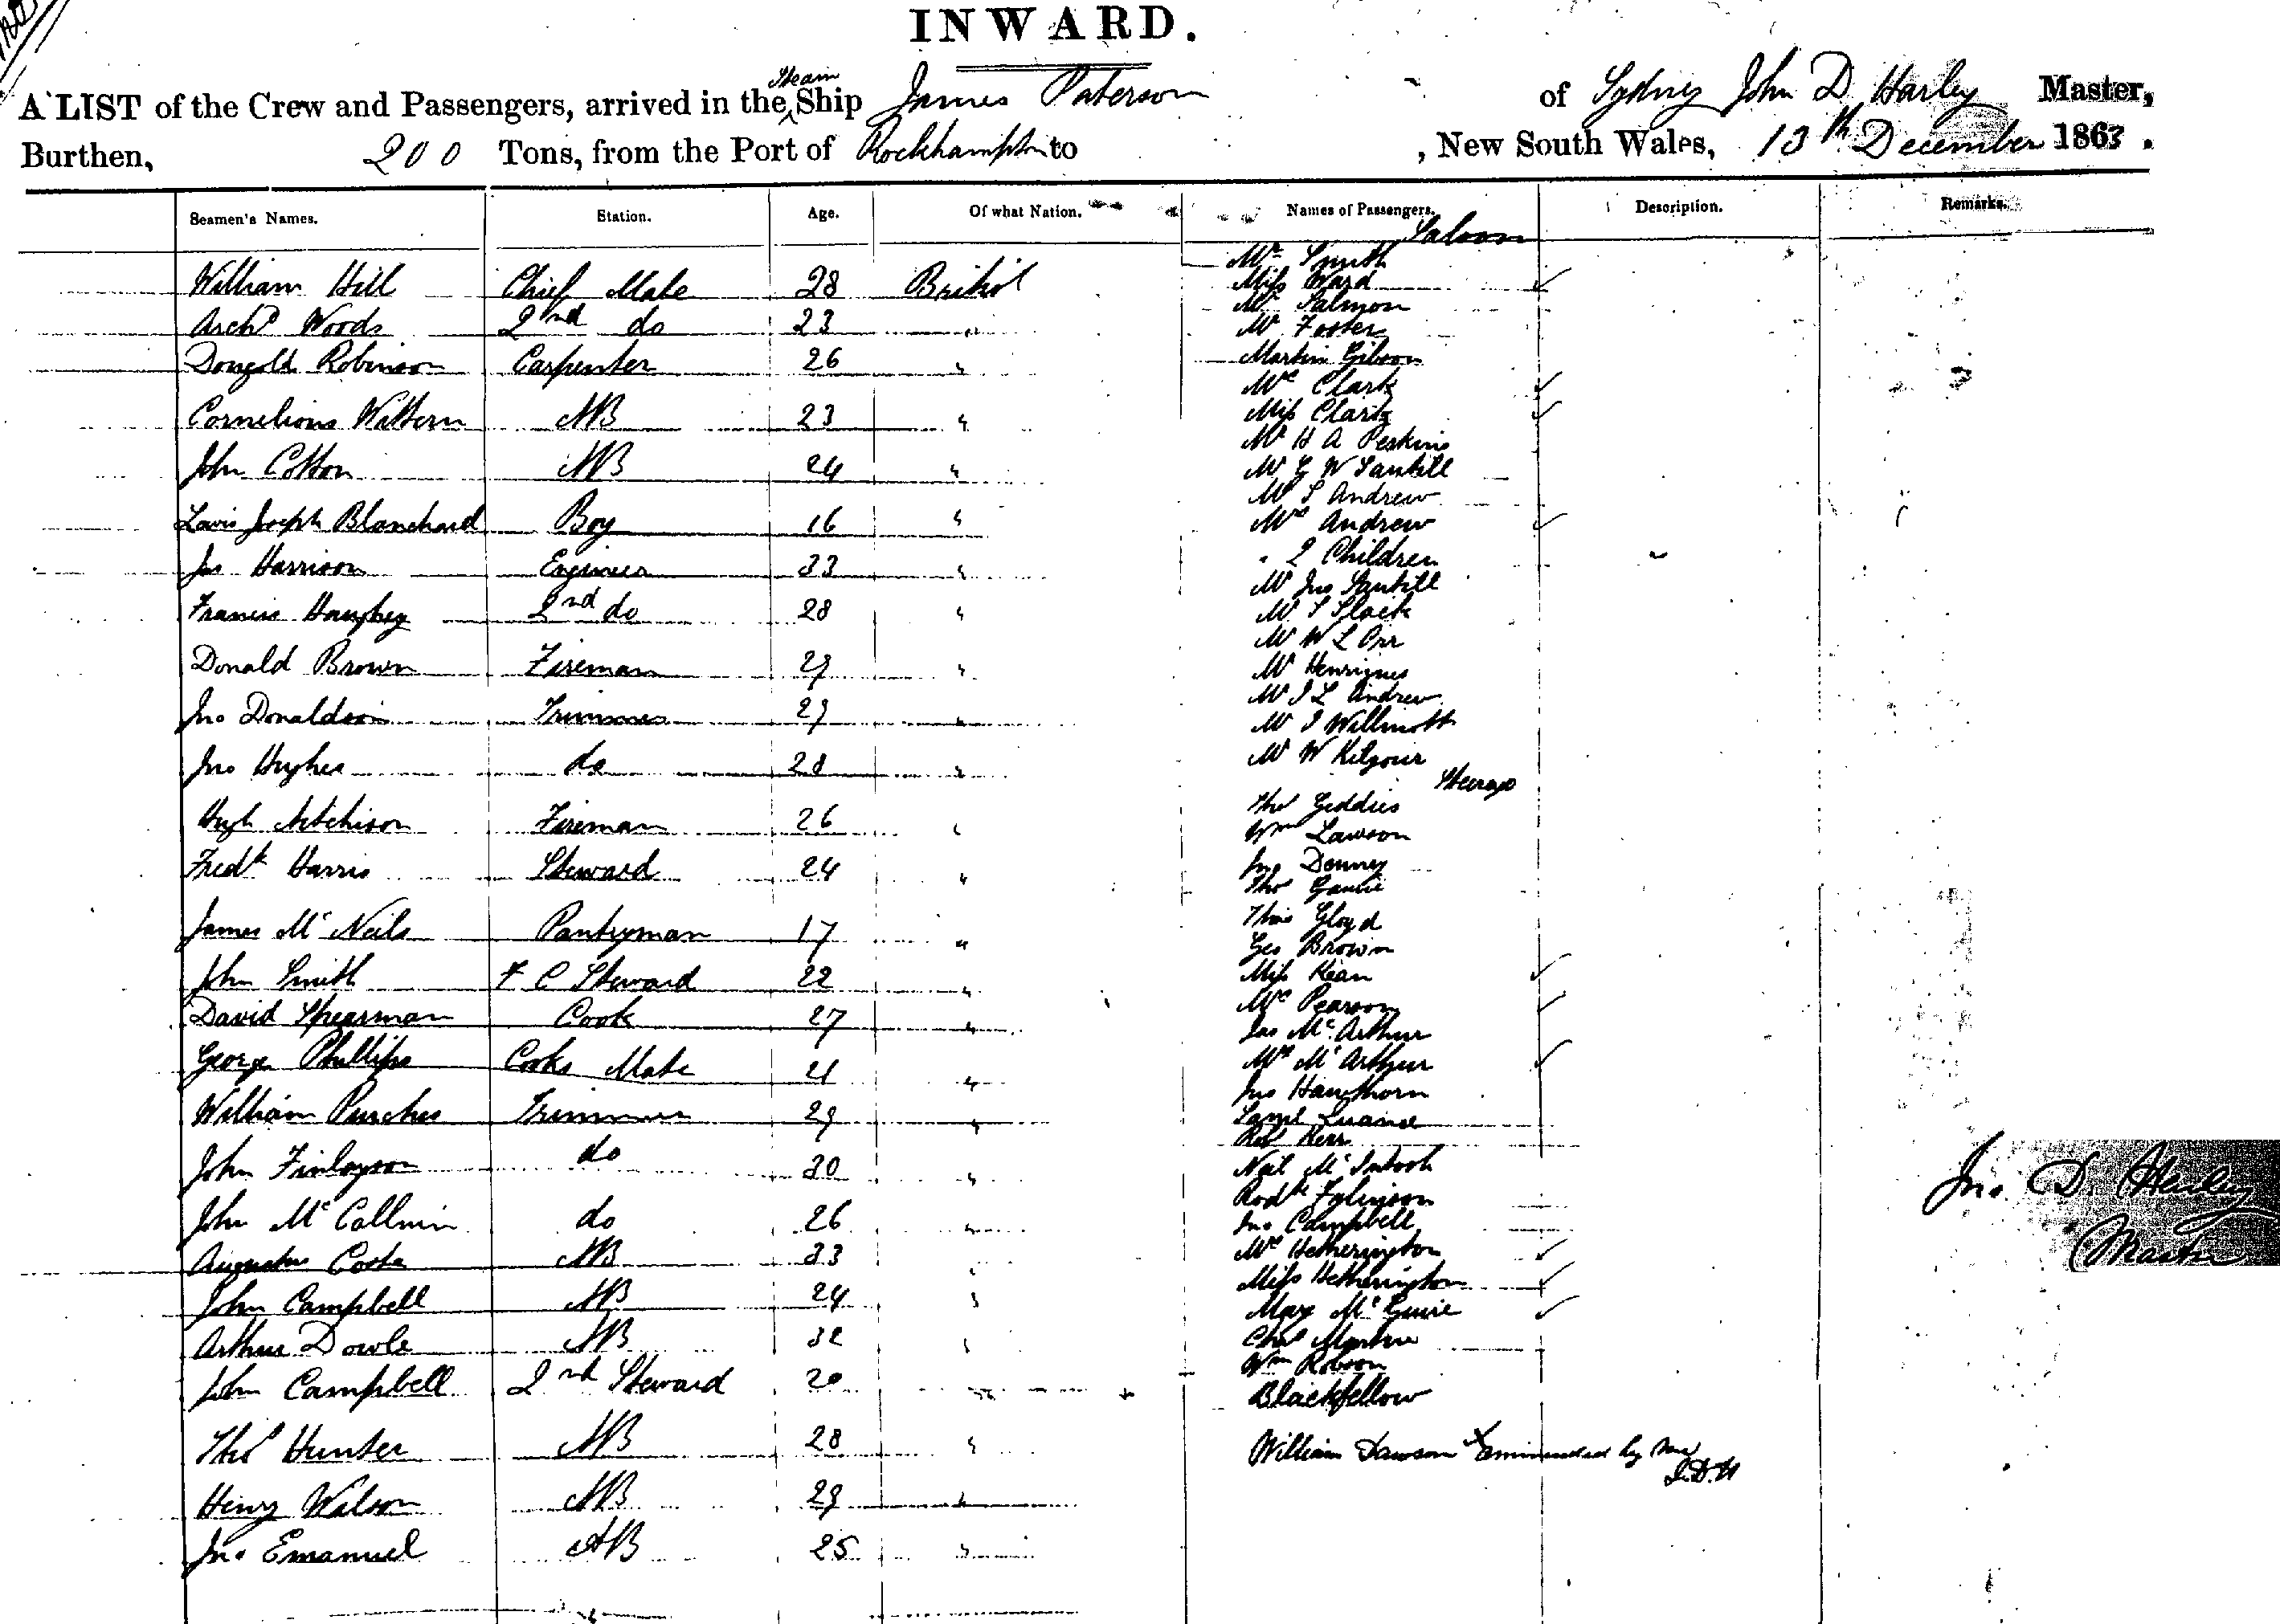 INWARD.
A LIST of the Crew and Passengers, arrived in the Steam Ship James Paterson of Sydney John D Harley Master,
Burthen, 200 Tons, from the Port of Rockhampton to , New South Wales, 13th December 1863.
Seamen's Names. Station. Age. Of what Nation. Names of Passengers. Description. Remarks.
Saloon
Mr Smith
William Hill Chief Mate 28 British Miss Ward ✓
Mr Salmon
Archd Woods 2nd do 23 " Mr Foster
Dougold Robinson Carpenter 26 " Martin Gibson
Mrs Clark ✓
Cornelious Wattern AB 23 " Miss Clark ✓
Mr H A Perkins
John Cotton AB 24 " Mr G W
Mr S Andrew
Louis Joseph Blanchard Boy 16 " Mrs Andrew ✓
" 2 Children
Jas Harrison Engineer 33 " Mr Jno
Francis Haughey 2nd do 28 " Mr S Slack
Mr W L Orr
Donald Brown Fireman 29 " Mr Henriques
Mr J L Andrew
Jno Donaldson Trimmer 29 " Mr J Willmott
Jno Hughes do 28 " Mr W Kilgour
Steerage
Hugh Aitchison Fireman 26 " Thos Geddies
Wm Lawson
Fredk Harris Steward 24 " Jno Denney
Thos
James McNeils Pantryman 17 " Thos Gloyd
Geo Brown
John Smith F C Steward 22 " Miss Kean ✓
David Spearman Cook 27 " Mrs Pearson ✓
Jas McArthur
George Phillips Cooks Mate 21 " Mrs McArthur ✓
Jno Hawthorn
William Purches Trimmer 29 " Saml
Robt Kerr
John Finlayson do 30 " Neil McIntosh
Rodk
John McCallum do 26 " Jno Campbell
Augustus Coste AB 33 " Mrs Hetherington ✓
Miss Hetherington ✓
John Campbell AB 24 " Mary McGuire ✓
Arthur Dowle AB 32 " Chas Martin
Wm Robson
John Campbell 2nd Steward 20 " Blackfellow
Thos Hunter AB 28 " William Dawson by me
J.D.H
Henry Watson AB 29 "
Jno Emanuel AB 25 "
Jno. D. Harley
Master